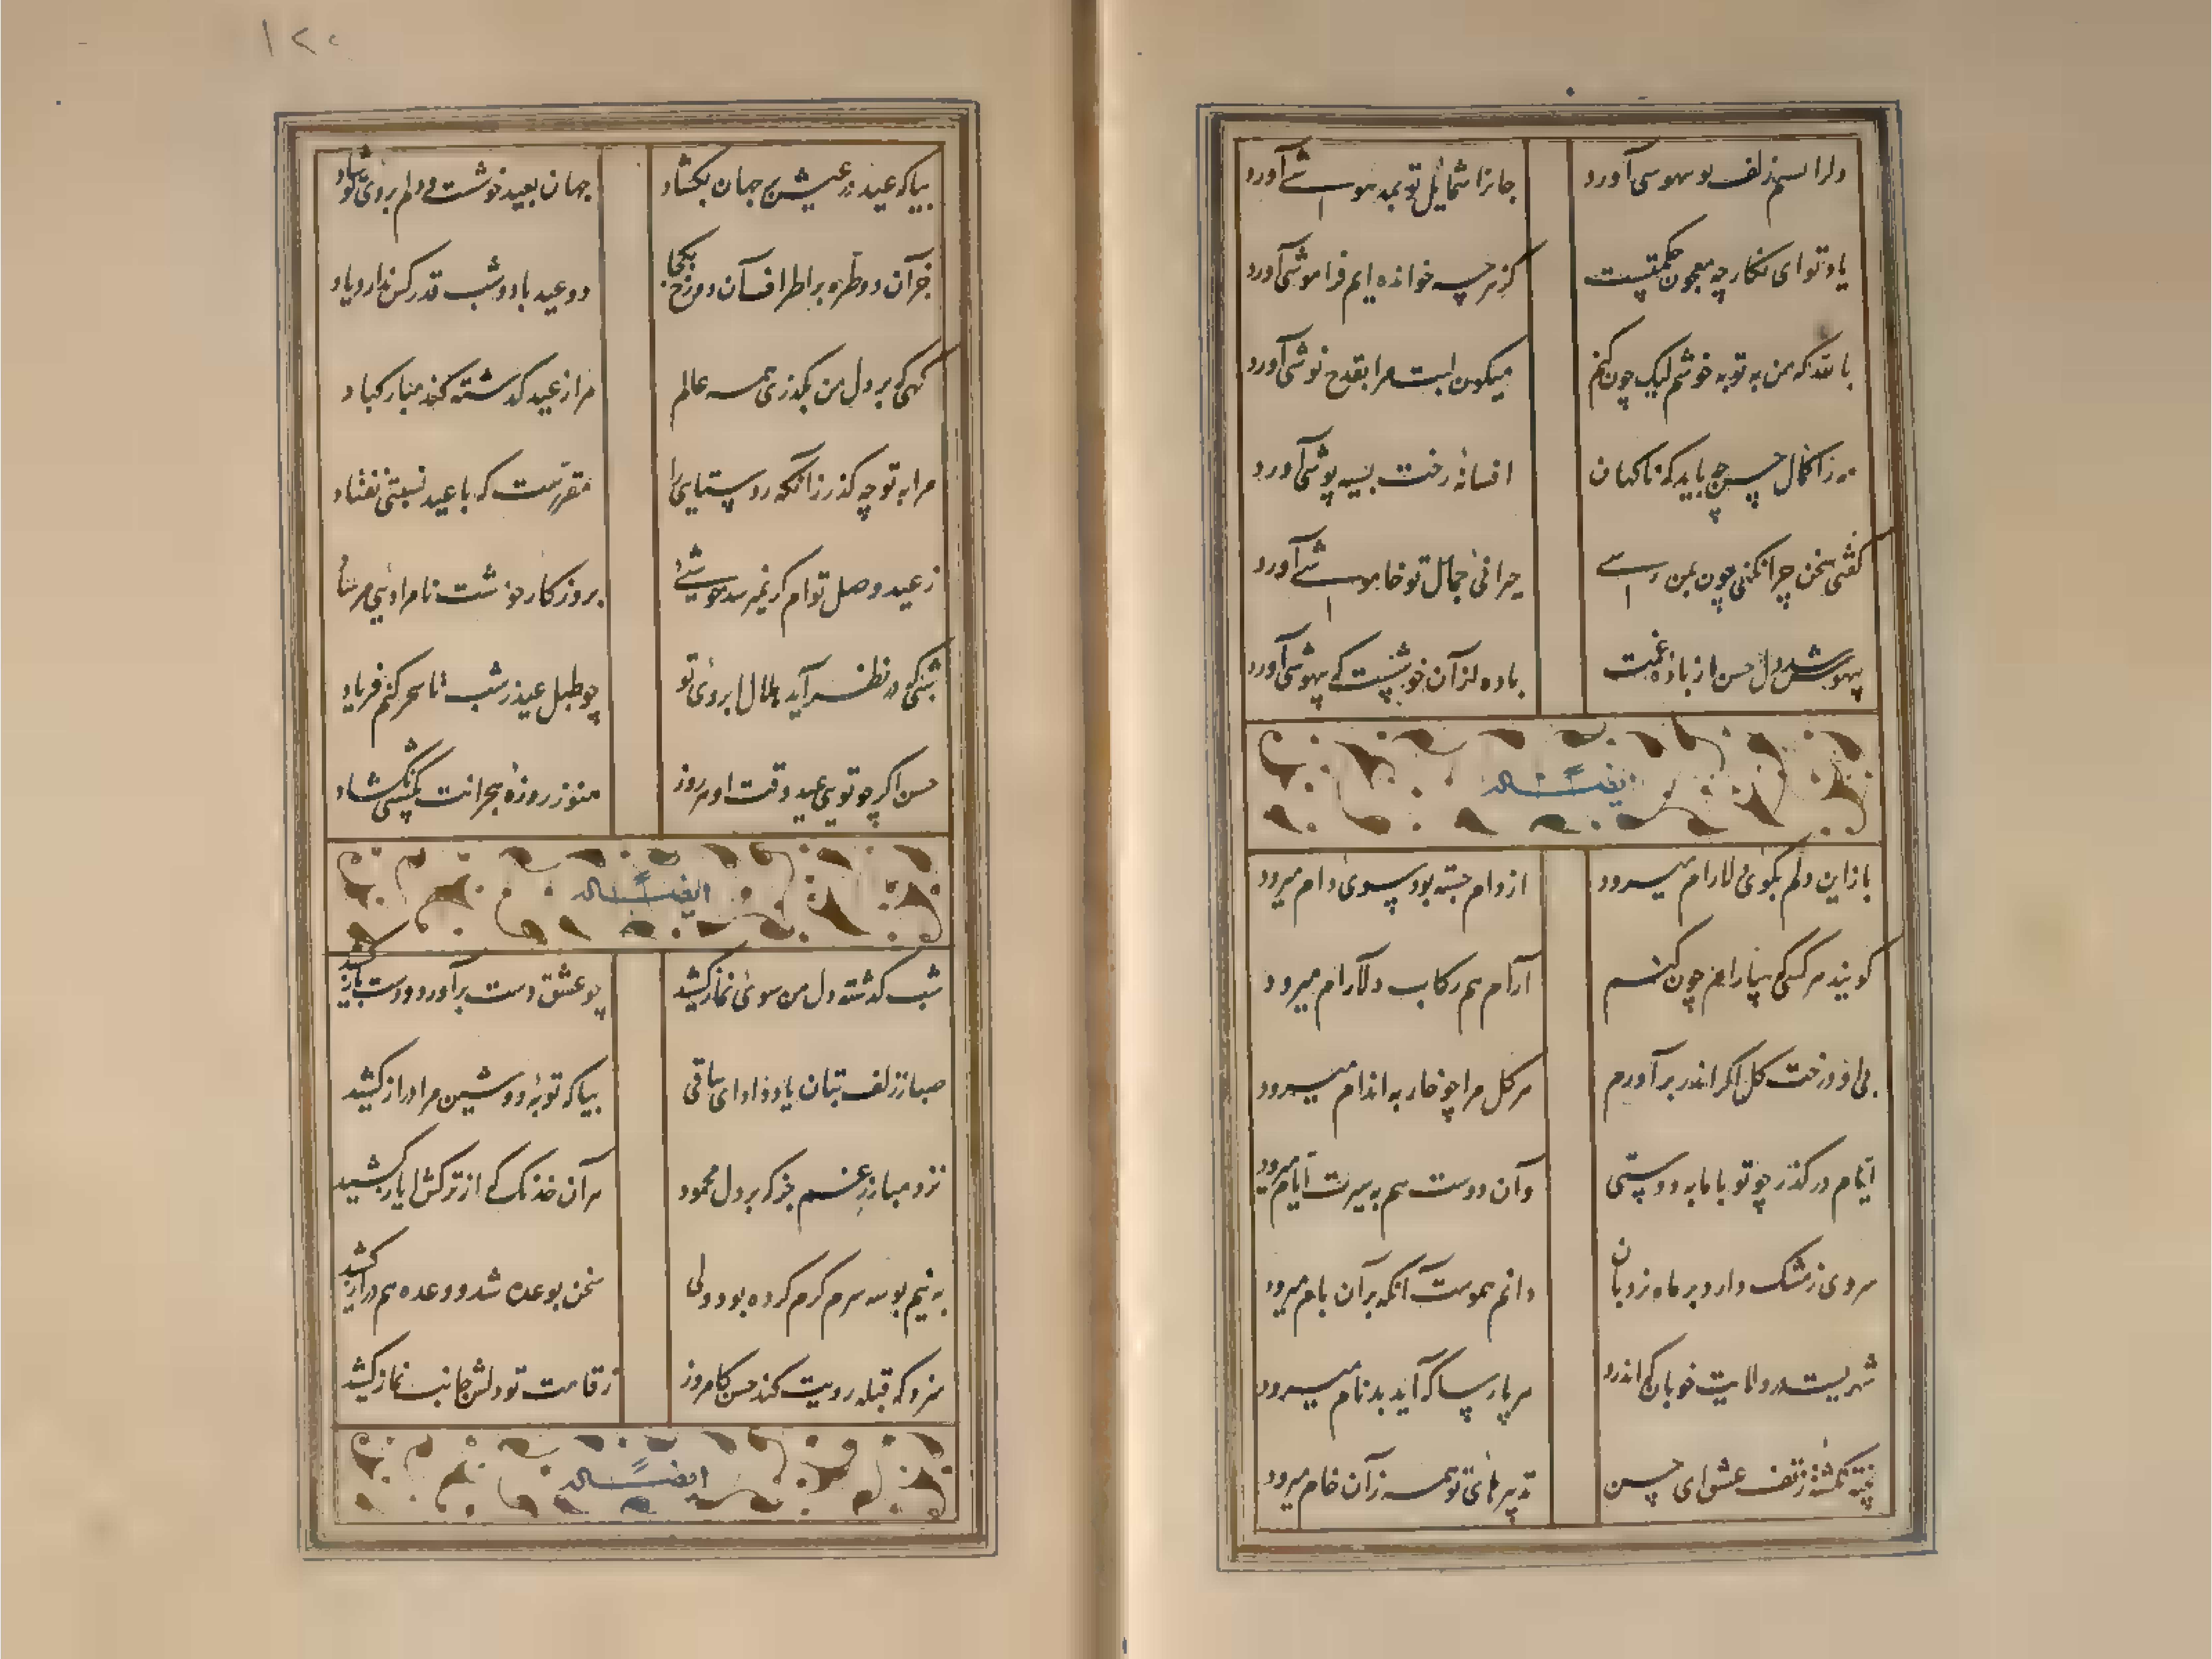 دلرا نسیم زلف تو بیهوشی آورد جانرا شمایل تو بمدهوشی آورد
یاد تو ای نگار چه معجون حکمتیست کز هرچه خوانده ایم فراموشی آورد
بالله که من به توبه خوشم لیک چون کنم میگون لبت مرا بقدح نوشی آورد
افسانه رخت بسیه پوشی آورد
گفتی سخن چرا نکنی چون بمن رسی حیرانی جمال تو خاموشی آورد
بیهوش شد دل حسن از باده غمت باده از آن خوشیست که بیهوشی آورد
ایضاً له
باز این دلم بکوی دلارام میرود از دام جسته بود سوی دام میرود
گویند هر کسی که بیارام چون کنم آرام هم رکاب دلارام میرود
بی او درخت گل اگر اندر بر آورم هر گل مرا چو خار به اندام میرود
ایام در گذر چو تو با ما به دوستی وآن دوست هم به سیرت ایام میرود
سروی ز مشک دارد بر ماه نردبان دانم هموست آنکه بر آن بام میرود
شهریست در ولایت خوبان که اندرو هر پارسا که آید بدنام میرود
پخته نگشته ز تف عشق ای حسن تدبیرهای تو همه زآن خام میرود
۱۲۰
بیا که عید در عیش بر جهان بگشاد جهان بعید خوشست و دلم بروی تو شاد
جز آن دو طره بر اطراف آن دو رخ یکجا دو عید با دو شب قدر کس ندارد یاد
گهی که بر دل من بگذری همه عالم مرا ز عید گذشته کند مبارکباد
مرا به تو چه گذر زانکه روستایی را مقررست که با عید نسبتی نفتاد
ز عید وصل توام گر نمیرسد موسی بروز کار خوشت نامرادیی مرساد
شبی که در نظر آید هلال ابروی تو چو طبل عید ز شب تا سحر کنم فریاد
حسن اگر چو تویی عید وقت او هر روز هنوز روزه هجرانت کسی نگشاد
ایضاً له
شب گذشته دل من سوی نماز کشید چو عشق دست برآورد و دست باز کشید
صبا ز زلف بتان یاد داد ای ساقی بیا که توبه دوشین مرا دراز کشید
نزد مبارز غم جز که بر دل محمود هر آن خدنگ که از ترکش ایاز کشید
به نیم بوسه سرم کرم کرده بود ولی سخن بوعده شد و وعده هم دراز کشید
سزد که قبله رویت کند حسن کامروز ز قامت تو دلش جانب نماز کشید
ایضاً له